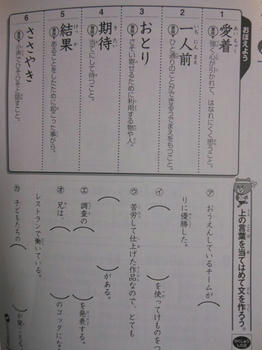 おぼえよう
1 愛着
あいちゃく
意味 強く心が引かれて、はなれにくく思うこと。
2 一人前
いちにんまえ
意味 ひと通りのことができるうでまえをもつこと。
3 おとり
意味 さそい寄せるために利用する物や人。
4 期待
きたい
意味 当てにして待つこと。
5 結果
けっか
意味 あることをしたために起こった事がら。
6 ささやき
意味 小声でひそひそと話すこと。
上の言葉を当てはめて文を作ろう。
㋐ おうえんしているチームが( )
りに優勝した。
㋑ ( )を使ってけものをつ
㋒ 苦労して仕上げた作品なので、とても
( )がある。
㋓ 調査の( )を発表する。
㋔ 兄は、( )のコックになっ
レストランで働いている。
㋕ 子どもたちの( )が